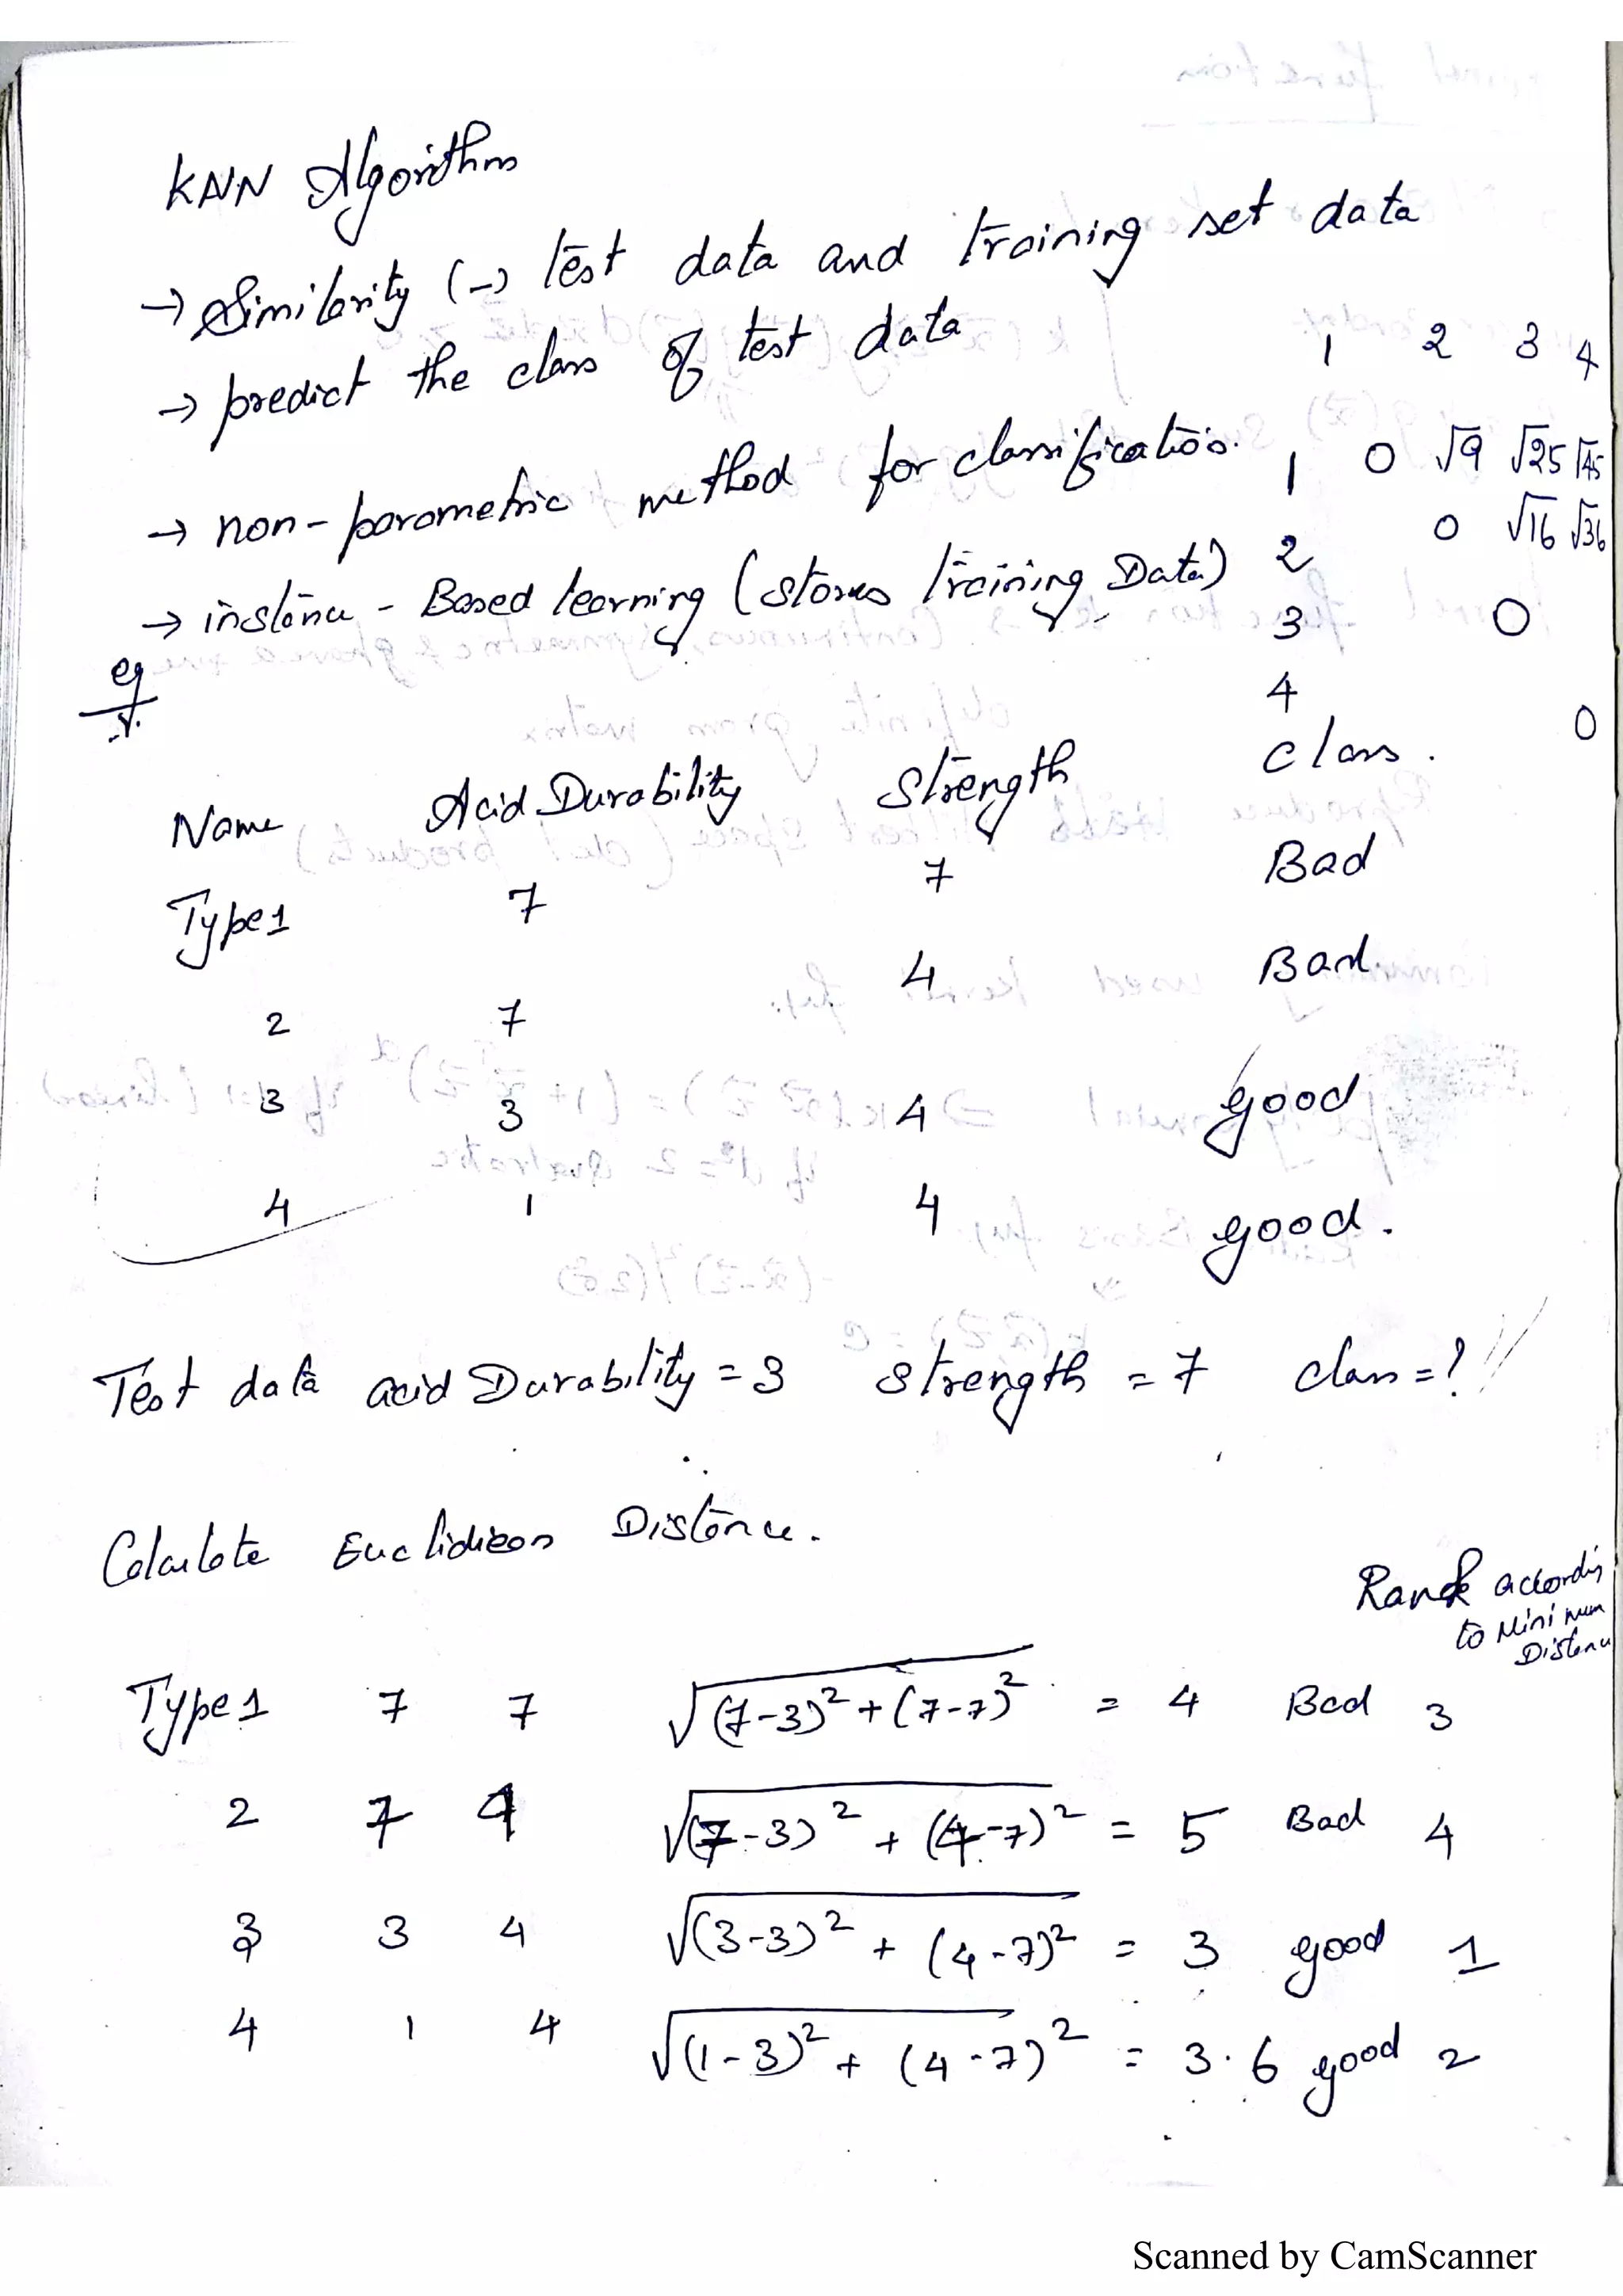 KNN Algorithm
→ Similarity (→ test data and training set data
→ predict the class of test data
→ non-parametric method for classification.
→ instance - Based learning (stores training Data)
1 2 3 4
1 0 √9 √25 √45
2 0 √16 √36
3 0
4 0
eg
Name Acid Durability Strength class.
Type1 7 7 Bad
2 7 4 Bad.
3 3 4 good
4 1 4 good.
Test data acid Durability = 3 strength = 7 class = ?
Calculate Euclidiean Distance.
Rank according
to Minimum
Distance
Type1 7 7 √(7-3)² + (7-7)² = 4 Bad 3
2 7 4 √(7-3)² + (4-7)² = 5 Bad 4
3 3 4 √(3-3)² + (4-7)² = 3 good 1
4 1 4 √(1-3)² + (4-7)² = 3.6 good 2
Scanned by CamScanner